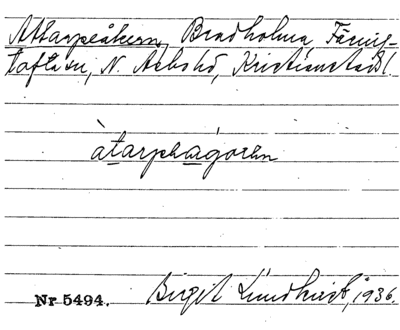 Attarpsåkern, Bradholma, Färing-
tofta sn, N. Åsbo hd, Kristianstads l.
àtarpsågorən
Nr 5494. Birgit Lundkvist, 1936.